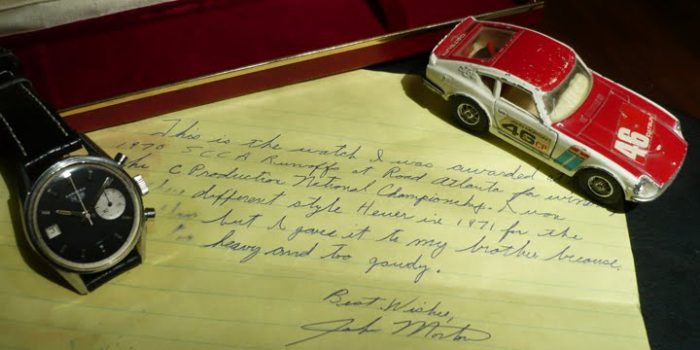 This is the watch I was awarded
1970 SCCA Runoffs at Road Atlanta for winning
the C Production National Championship. I won
different style Heuer in 1971 for the
but I gave it to my brother because
heavy and too gaudy.
Best Wishes,
John Morton
46
46